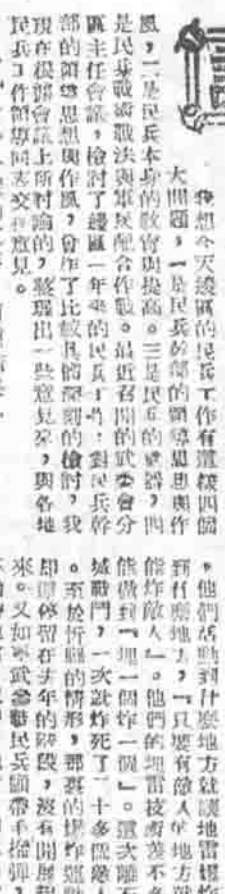 我想今天邊區的民兵工作有這樣四個
大問題，一是民兵幹部的領導思想與作
風，二是民兵本身的教育與提高。三是民兵的武器，四
是民兵戰術戰法與軍民配合作戰。最近召開的武委會分
區主任會議，檢討了邊區一年來的民兵工作，對民兵幹
部的領導思想與作風，曾作了比較具體深刻的檢討，我
現在根據會議上所討論的，整理出一些意見來，與各地
民兵工作領導同志交換意見。
，他們活動到什麼地方就讓地雷爆炸
到什麼地方，「只要有敵人的地方就
能炸敵人」。他們的埋雷技術差不
能做到「埋一個炸一個」。這次離石
城戰鬥，一次就炸死了二十多個敵人
。至於忻縣的情形，那裏的爆炸運動
却還停留在去年的階段，沒有開展起
來。又如 武委會民兵 帶手榴彈，